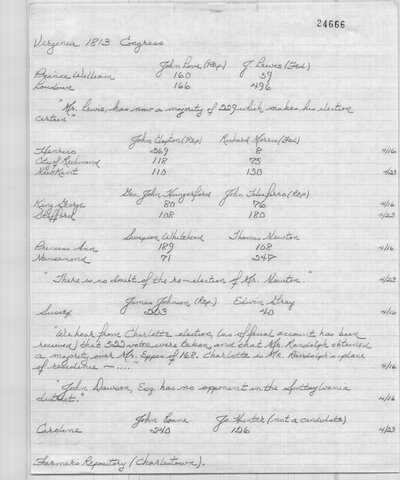 24666
Virginia 1813 Congress
John Love (Rep) J Lewis (Fed.)
Prince William 160 59
Loudoun 166 496
"Mr. Lewis, has now a majority of 229 which makes his election
certain"
John Clopton (Rep) Richard Morris (Fed)
Henrico 269 8 4/16
City of Richmond 118 75
New Kent 110 130 4/23
Gen. John Hungerford John Taliaferro (Rep)
King George 80 76 4/16
Stafford 108 180 4/23
Swepson Whitehead Thomas Newton
Princess Ann 189 108 4/16
Nansemond 71 247
"There is no doubt of the re-election of Mr. Newton." 4/23
James Johnson (Rep.) Edwin Gray
Sussex 203 40 4/16
"We hear from Charlotte election, (no official account has been
received) that 522 votes were taken and that Mr. Randolph obtained
a majority over Mr. Eppes of 168. Charlotte is Mr. Randolph's place
of residence — ...." 4/16
"John Dawson, Esq. has no opponent in the Spottsylvania
district." 4/16
John Jo. Hunter (not a candidate)
Caroline 240 126 4/23
Farmers Repository (Charlestown).